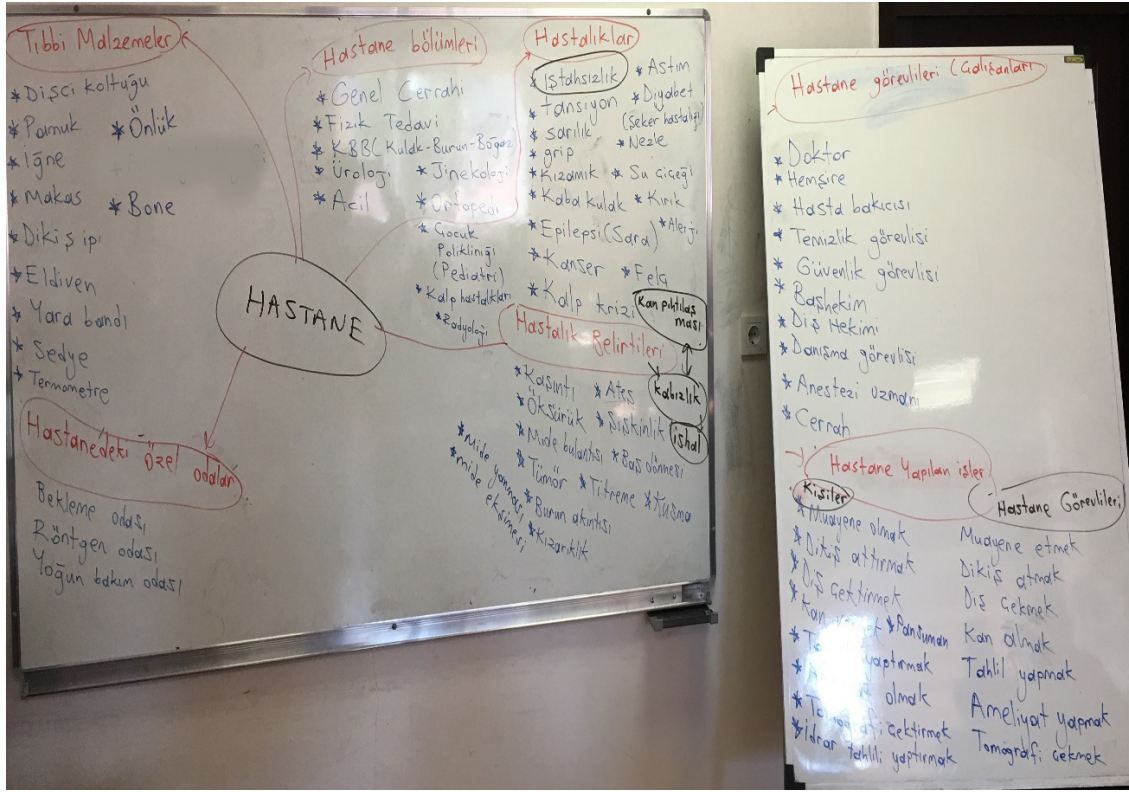 Tıbbi Malzemeler
* Dişci koltuğu
* Pamuk * Önlük
* iğne
* Makas * Bone
* Dikiş ipi
* Eldiven
* Yara bandı
* Sedye
* Termometre
Hastanedeki Özel odalar
Bekleme odası
Röntgen odası
Yoğun bakım odası
HASTANE
Hastane bölümleri
* Genel Cerrahi
* Fizik Tedavi
* KBB( Kulak-Burun-Boğaz
* Üroloji * Jinekoloji
* Acil * Ortopedi
* Çocuk
Polikliniği
(Pediatri)
* Kalp hastalıkları
* Radyoloji
Hastalıklar
* İştahsızlık * Astım
* tansiyon * Diyabet
(Şeker hastalığı)
* sarılık * Nezle
* grip
* Kızamık * Su Çiçeği
* Kaba kulak * Kırık
* Epilepsi(Sara) * Alerji
* Kanser * Felç
* Kalp krizi
Kan pıhtılaş
ması
Kabızlık
ishal
Hastalık Belirtileri
* Kaşıntı * Ateş
* Öksürük * Şişkinlik
* Mide bulantısı * Baş dönmesi
* Tümör * Titreme * Kusma
* Burun akıntısı
* Kızarıklık
* Mide yanması
* mide ekşimesi
Hastane görevlileri (Çalışanları
* Doktor
* Hemşire
* Hasta bakıcısı
* Temizlik görevlisi
* Güvenlik görevlisi
* Başhekim
* Diş Hekimi
* Danışma görevlisi
* Anestezi uzmanı
* Cerrah
Hastane Yapılan işler
Kişiler
* Muayene olmak
* Dikiş attırmak
* Diş çektirmek
* Kan * Pansuman
* yaptırmak
* olmak
* Tomografi çektirmek
* idrar tahlili yaptırmak
Hastane Görevlileri
Muayene etmek
Dikiş atmak
Diş çekmek
Kan almak
Tahlil yapmak
Ameliyat yapmak
Tomografi çekmek